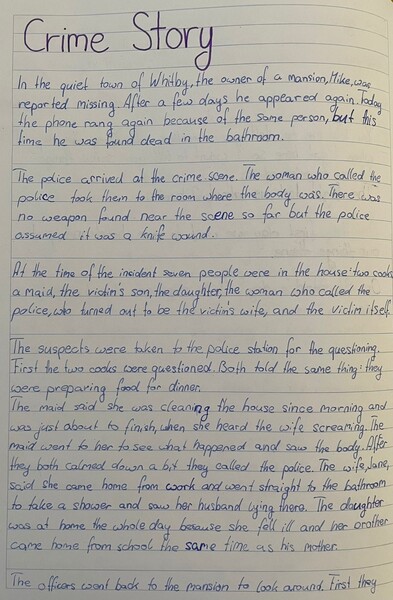 Crime Story
In the quiet town of Whitby, the owner of a mansion, Mike, was
reported missing. After a few days he appeared again. Today
the phone rang again because of the same person, but this
time he was found dead in the bathroom.
The police arrived at the crime scene. The woman who called the
police took them to the room where the body was. There was
no weapon found near the scene so far but the police
assumed it was a knife wound.
At the time of the incident seven people were in the house: two cooks
a maid, the victim's son, the daughter, the woman who called the
police, who turned out to be the victim's wife, and the victim itself.
The suspects were taken to the police station for the questioning.
First the two cooks were questioned. Both told the same thing: they
were preparing food for dinner.
The maid said she was cleaning the house since morning and
was just about to finish, when she heard the wife screaming. The
maid went to her to see what happened and saw the body. After
they both calmed down a bit they called the police. The wife, Jane,
said she came home from work and went straight to the bathroom
to take a shower and saw her husband lying there. The daughter
was at home the whole day because she fell ill and her brother
came home from school the same time as his mother.
The officers went back to the mansion to look around. First they